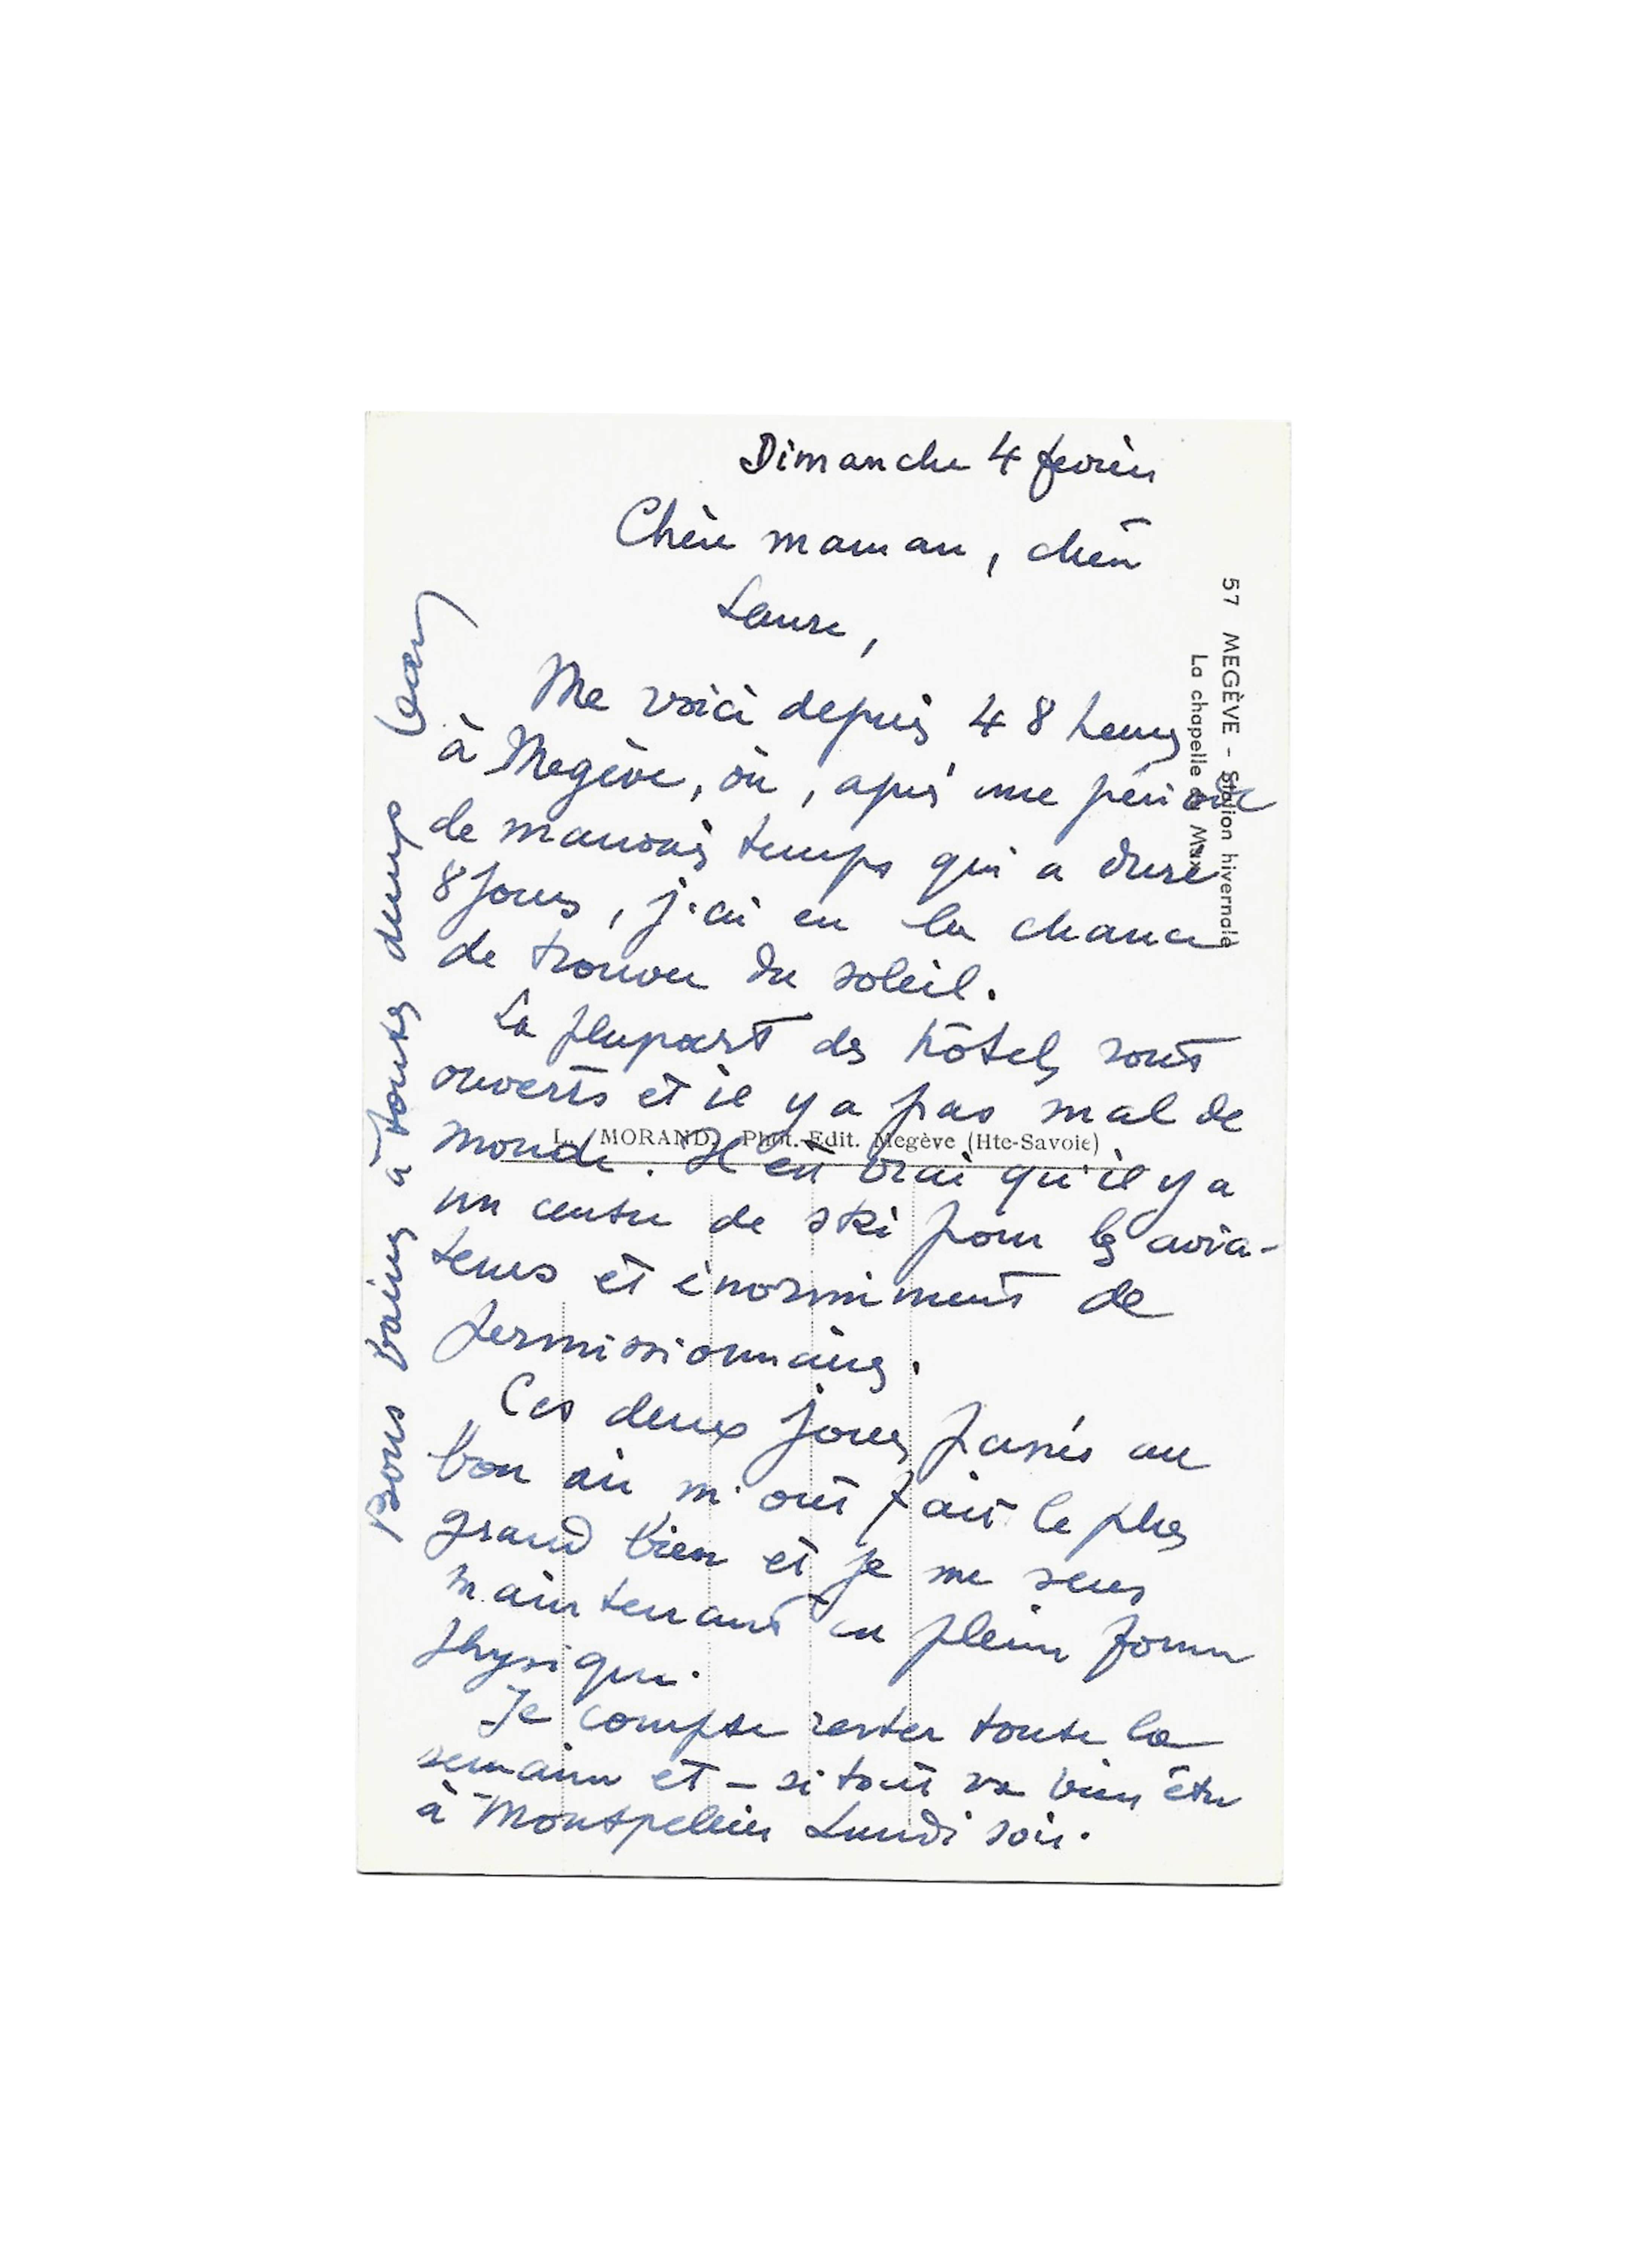 Dimanche 4 février
Chère maman, chère
Laure,
Me voici depuis 48 heures
à Megève, où, après une période
de mauvais temps qui a duré
8 jours, j'ai eu la chance
de trouver du soleil.
La plupart des hôtels sont
ouverts et il y a pas mal de
monde. Il est vrai qu'il y a
un centre de ski pour les avia-
teurs et énormément de
permissionnaires.
Ces deux jours passés au
bon air m'ont fait le plus
grand bien et je me sens
maintenant en pleine forme
physique.
Je compte rester toute la
semaine et – si tout va bien être
à Montpellier Lundi soir.
Bons baisers à toutes deux
Jean
57 MEGÈVE - Station hivernale
La chapelle du Maz
L. MORAND, Phot.-Edit. Megève (Hte-Savoie)